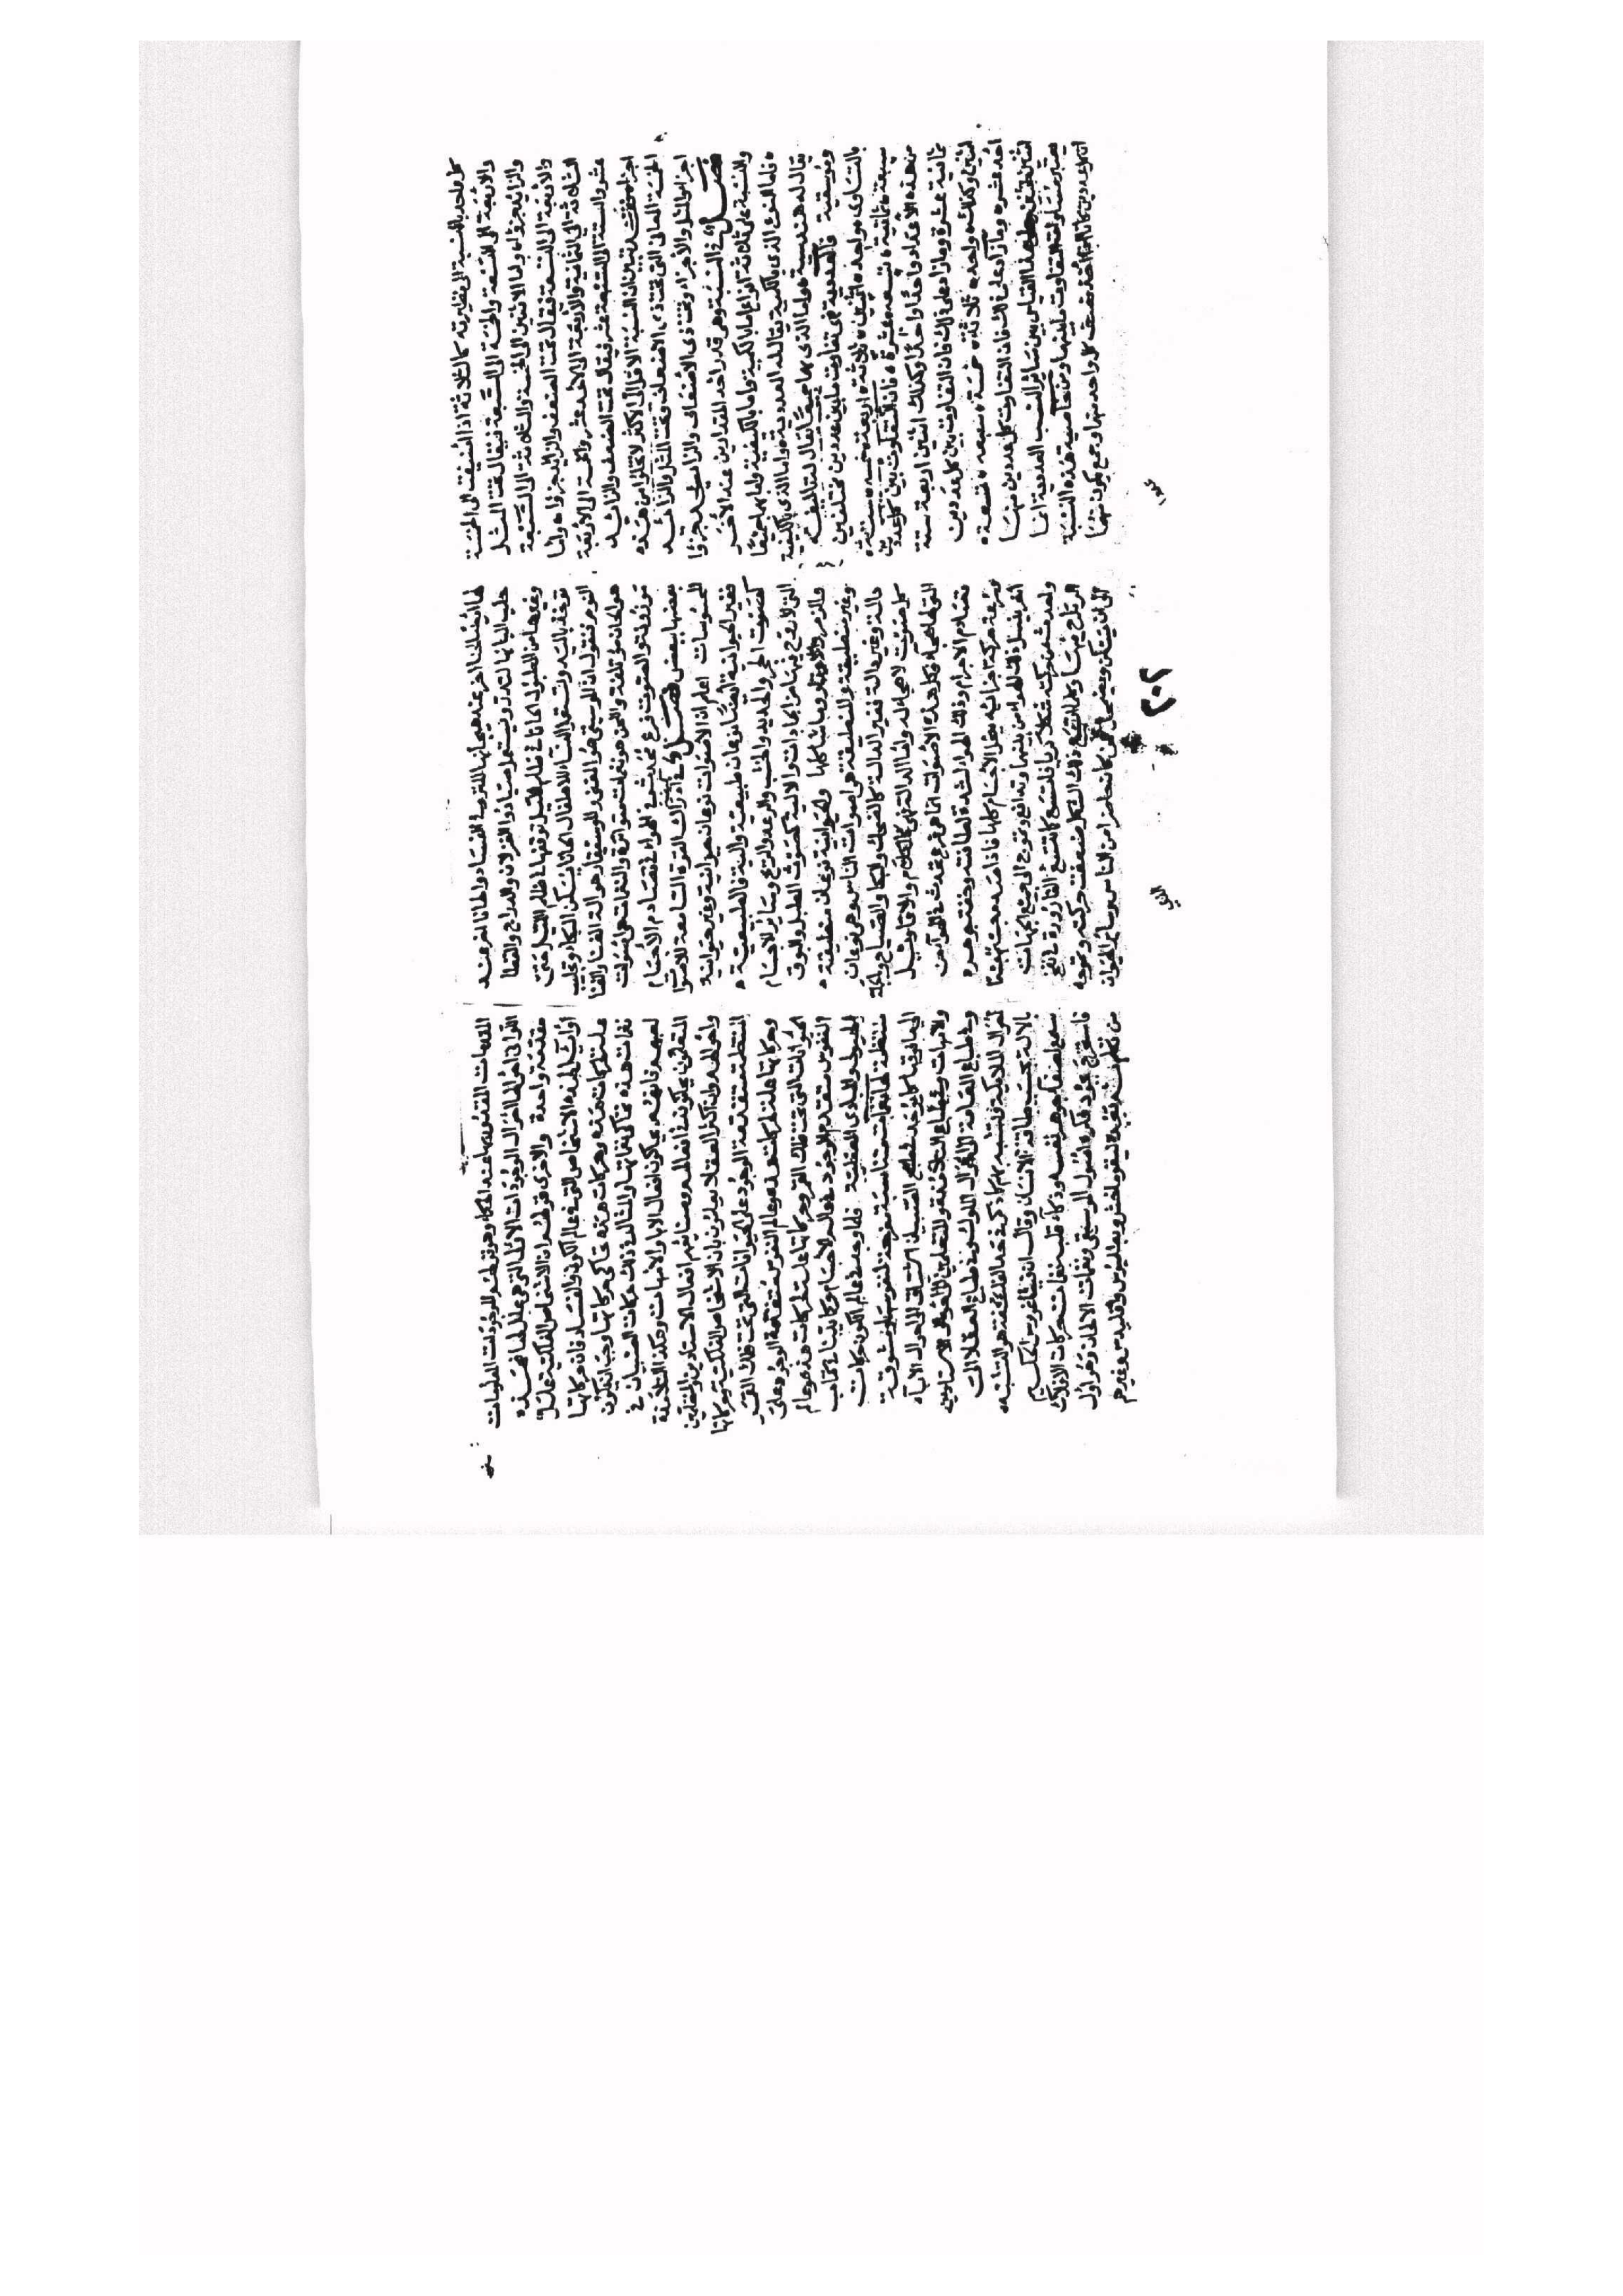 كل واحد بالنسبة الى نظيرته كالثلاثة اذا اضيفت الى الخمسة
والاربعة الى الستة والخمسة الى السبعة فيقال تحت المثل
والزائد جزؤا واما الاثنين الى الخمسة والثلاثة الى السبعة
والاربعة الى التسعة فيقال تحت الضعف والزائد جزؤا واما
الثلاثة الى الثمانية والاربعة الى الاحد عشر والخمسة الى الاربعة
عشر والستة الى السبعة عشر فيقال تحت الضعف والزائد
اجزا فقد تبين ان النسبة الاقل الى الاكثر لا تخلوا من هذه
الخمسة المعاني التي تحت ذي الاضعاف وتحت المثل والزائد
اجزا والمثل والاجزاء وتحت ذي الاضعاف والزائد جزؤا
فصل في النسبة وهي قدر احد المقدارين عند الاخر
والنسبة على ثلاثة انواع اما بالكمية واما بالكيفية واما بهما جميعا
فاما النوع الذي بالكمية يقال له العددية واما الذي بالكيفية
يقال له هندسية واما الذي بهما جميعا يقال له تاليفية
وموسيقية فالعددية هي تفاوت ما بين عددين مختلفين
بالتساوي واحد اثنين ثلاثة اربعة خمسة ستة
سبعة ثمانية تسعة عشرة فان التفاوت بين كل عددين
من هذه الاعداد واحدا واحدا وكذلك اثنين اربعة ستة
ثمانية عشرة وما زاد على ذلك فان التفاوت بين كل عددين
اثنين وكذلك واحد ثلاثة خمسة سبعة تسعة
احد عشر وما زاد على ذلك فان التفاوت كل عددين منها
اثنين اثنين وعلى هذا القياس بين سائر النسب العددية انما
يعتبر مساواة التفاوت ما بينها ومن خاصية هذه النسبة
ان كل عددين كانا اخذ نصف كل واحد منهما وجمع يكون منهما
لها ايضا لحنا اخر عند هيجانها للنزو والسفاد والحانا اخر عند
حلب البانها لتدر ويستعمل صيادوا الغزلان والدراج والقطا
وغيرها من الطيور الحانا في ظلم الليل توقعها في ظلم الليل حتى
توخذ باليد وتستعمل النساء للاطفال الحانا تسكن البكاء وتجلب
النوم فنقول ان الموسيقى هو الغنى والموسيقار هو آلة الغنا والغنا
هو الحان مؤتلفة واللحن هو نغمات متواترة والنغمات هي اصوات
موزونة والصوت قرع يحدث في الهواء من تصادم الاجسام
بعضها ببعض فصل في ادراك القوة السامعة للاصوا
المحسوسات اعلم ان الاصوات نوعان حيوانية وغير حيوانية
فغير الحيوانية ايضا نوعان طبيعية وآلية فالطبيعية
كصوت الحجر والحديد والخشب والرعد والريح وسائر الاجسام
التي لا روح فيها من الجمادات والآلية كصوت الطبل والبوق
والزمر والاوتار وما شاكلها والحيوانية نوعان منطقية
وغير منطقية والمنطقية هي اصوات الناس وهي نوعان
دالة وغير دالة فغير الدالة كالضحك والبكا والصياح وبالجملة
كل صوت لا هجا له واما الدالة فهي كالكلام والاقاويل
التي لها هجاء وكل هذه الاصوات انما هي قرع يحدث في الهواء من
تصادم الاجرام وذلك الهواء لشدة لطافته وخفة جوهره
وسرعة حركة اجزائه يتخلل الاجسام كلها فاذا صدم جسم جسما
اخر انسل ذلك الهواء من بينهما وتدافع وتموج الى جميع الجهات
وحدث من حركته شكل كري واتسع كما تتسع القارورة في نفخ
الزجاج فيها وكلما اتسع ذلك الشكل ضعفت حركته وتموجه
الى ان يسكن ويضمحل فمن كان حاضرا من الناس وسائر الحيوان
٢٠٢
المقدمات المقدوره عند الحكماء وهو قولهم الموجودات المعلولات
الثواني احوالها احوال الموجودات الاولى التي هي علل لها فهذه
مقدمة واحدة والاخرى قولهم ان الاشخاص الفلكية علل
اوائل لهذه الاشخاص التي في عالم الكون والفساد وان حركاتها
علة لحركات هذه وحركات هذه تحاكي حركاتها فوجب ان تكون
نغمات هذه تحاكي نغماتها والمثال في ذلك حركات الصبيان في
لعبهم فانهم يحاكون افعال الابا والامهات وهكذا التلامذة
المتعلمون يحاكون في افعالهم وصنائعهم افعال الاستاذين والمعلمين
واحوالهم وان اكثر العقلا يعلمون بان الاشخاص الفلكية وحركاتها
المنتظمة متقدمة الوجود على الحيوانات التي تحت فلك القمر
وحركاتها علة لحركات هذه وعالم النفوس متقدمة الوجود على
الحيوانات التي تحت فلك القمر وحركاتها علة لحركات هذه وعالم
النفوس متقدم الوجود على عالم الاجسام كما بينا في كتاب
الهيولى والمبادى العقلية فلما وجد في عالم الكون حركات
منتظمة لها نغمات متناسبة مفرحة لنفوسها ومشوقة
الى ما فوقها كما يوجد في طباع الصبيان اشتياق الى احوال الآباء
والامهات وفي طباع التلامذة والمتعلمين الى احوال الاستاذين
وفي طباع العامة الى احوال الملوك وفي طباع العقلا الى
احوال الملائكة والتشبه بهم كما ذكر في حد الفلسفة هو التشبه
بالاله بحسب طاقة الانسان وقال ان فيثاغورس الحكيم
سمع بصفاء جوهر نفسه وذكاء قلبه نغمات حركات الافلاك
فاستخرج بجودة فكره اصول الموسيقى ونغمات الالحان وهو اول
من تكلم ثم بعده نيقوماخس وبطليموس واقليدس وغيرهم